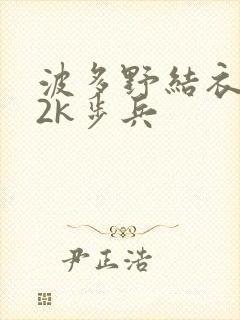 波多野結衣
2k步兵
尹正浩